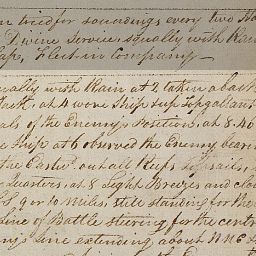 tried for soundings every two Ho
Divine Service. Squally with Rain
Fleet in Company
ually with Rain at 2 taken aback
at 4 wore Ship up Topgallant
als of the Enemy's Position, at 8.46
Ship at 6 observed the Enemy bearing
the Eastwd out all Reefs Topsails,
Quarters, at 8 Light Breezes and clou
9 or 10 Miles, still standing for the
Line of Battle steering for the centre
Line extending about NNE